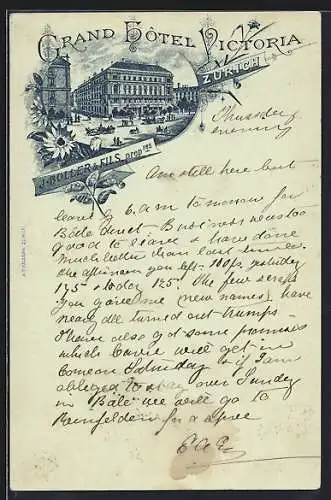 GRAND HÔTEL VICTORIA
ZÜRICH
J. BOLLER & FILS, propres
Thursday
evening
Am still here but
leave by 6. a.m. tomorrow for
Bâle direct - Business was too
good to leave & have done
much better than last time.
the afternoon you left 100f. yesterday
175 - today 125 - The few scraps
you gave me (new names) have
nearly all turned out trumps -
I have also got some promises
which will get in
Saturday & if I am
obliged to stay over Sunday
in Bâle we will go to
Rheinfelden for a spree